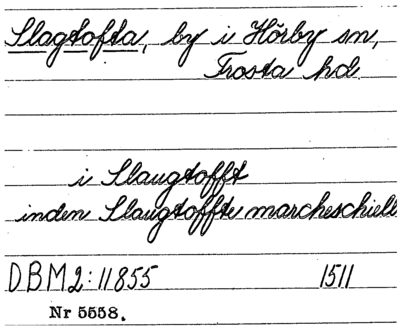 Slagtofta, by i Hörby sn,
Frosta hd.
i Slaugtofft
inden Slaugtoffte marcheschiell
DBM2:11855 1511
Nr 5558.